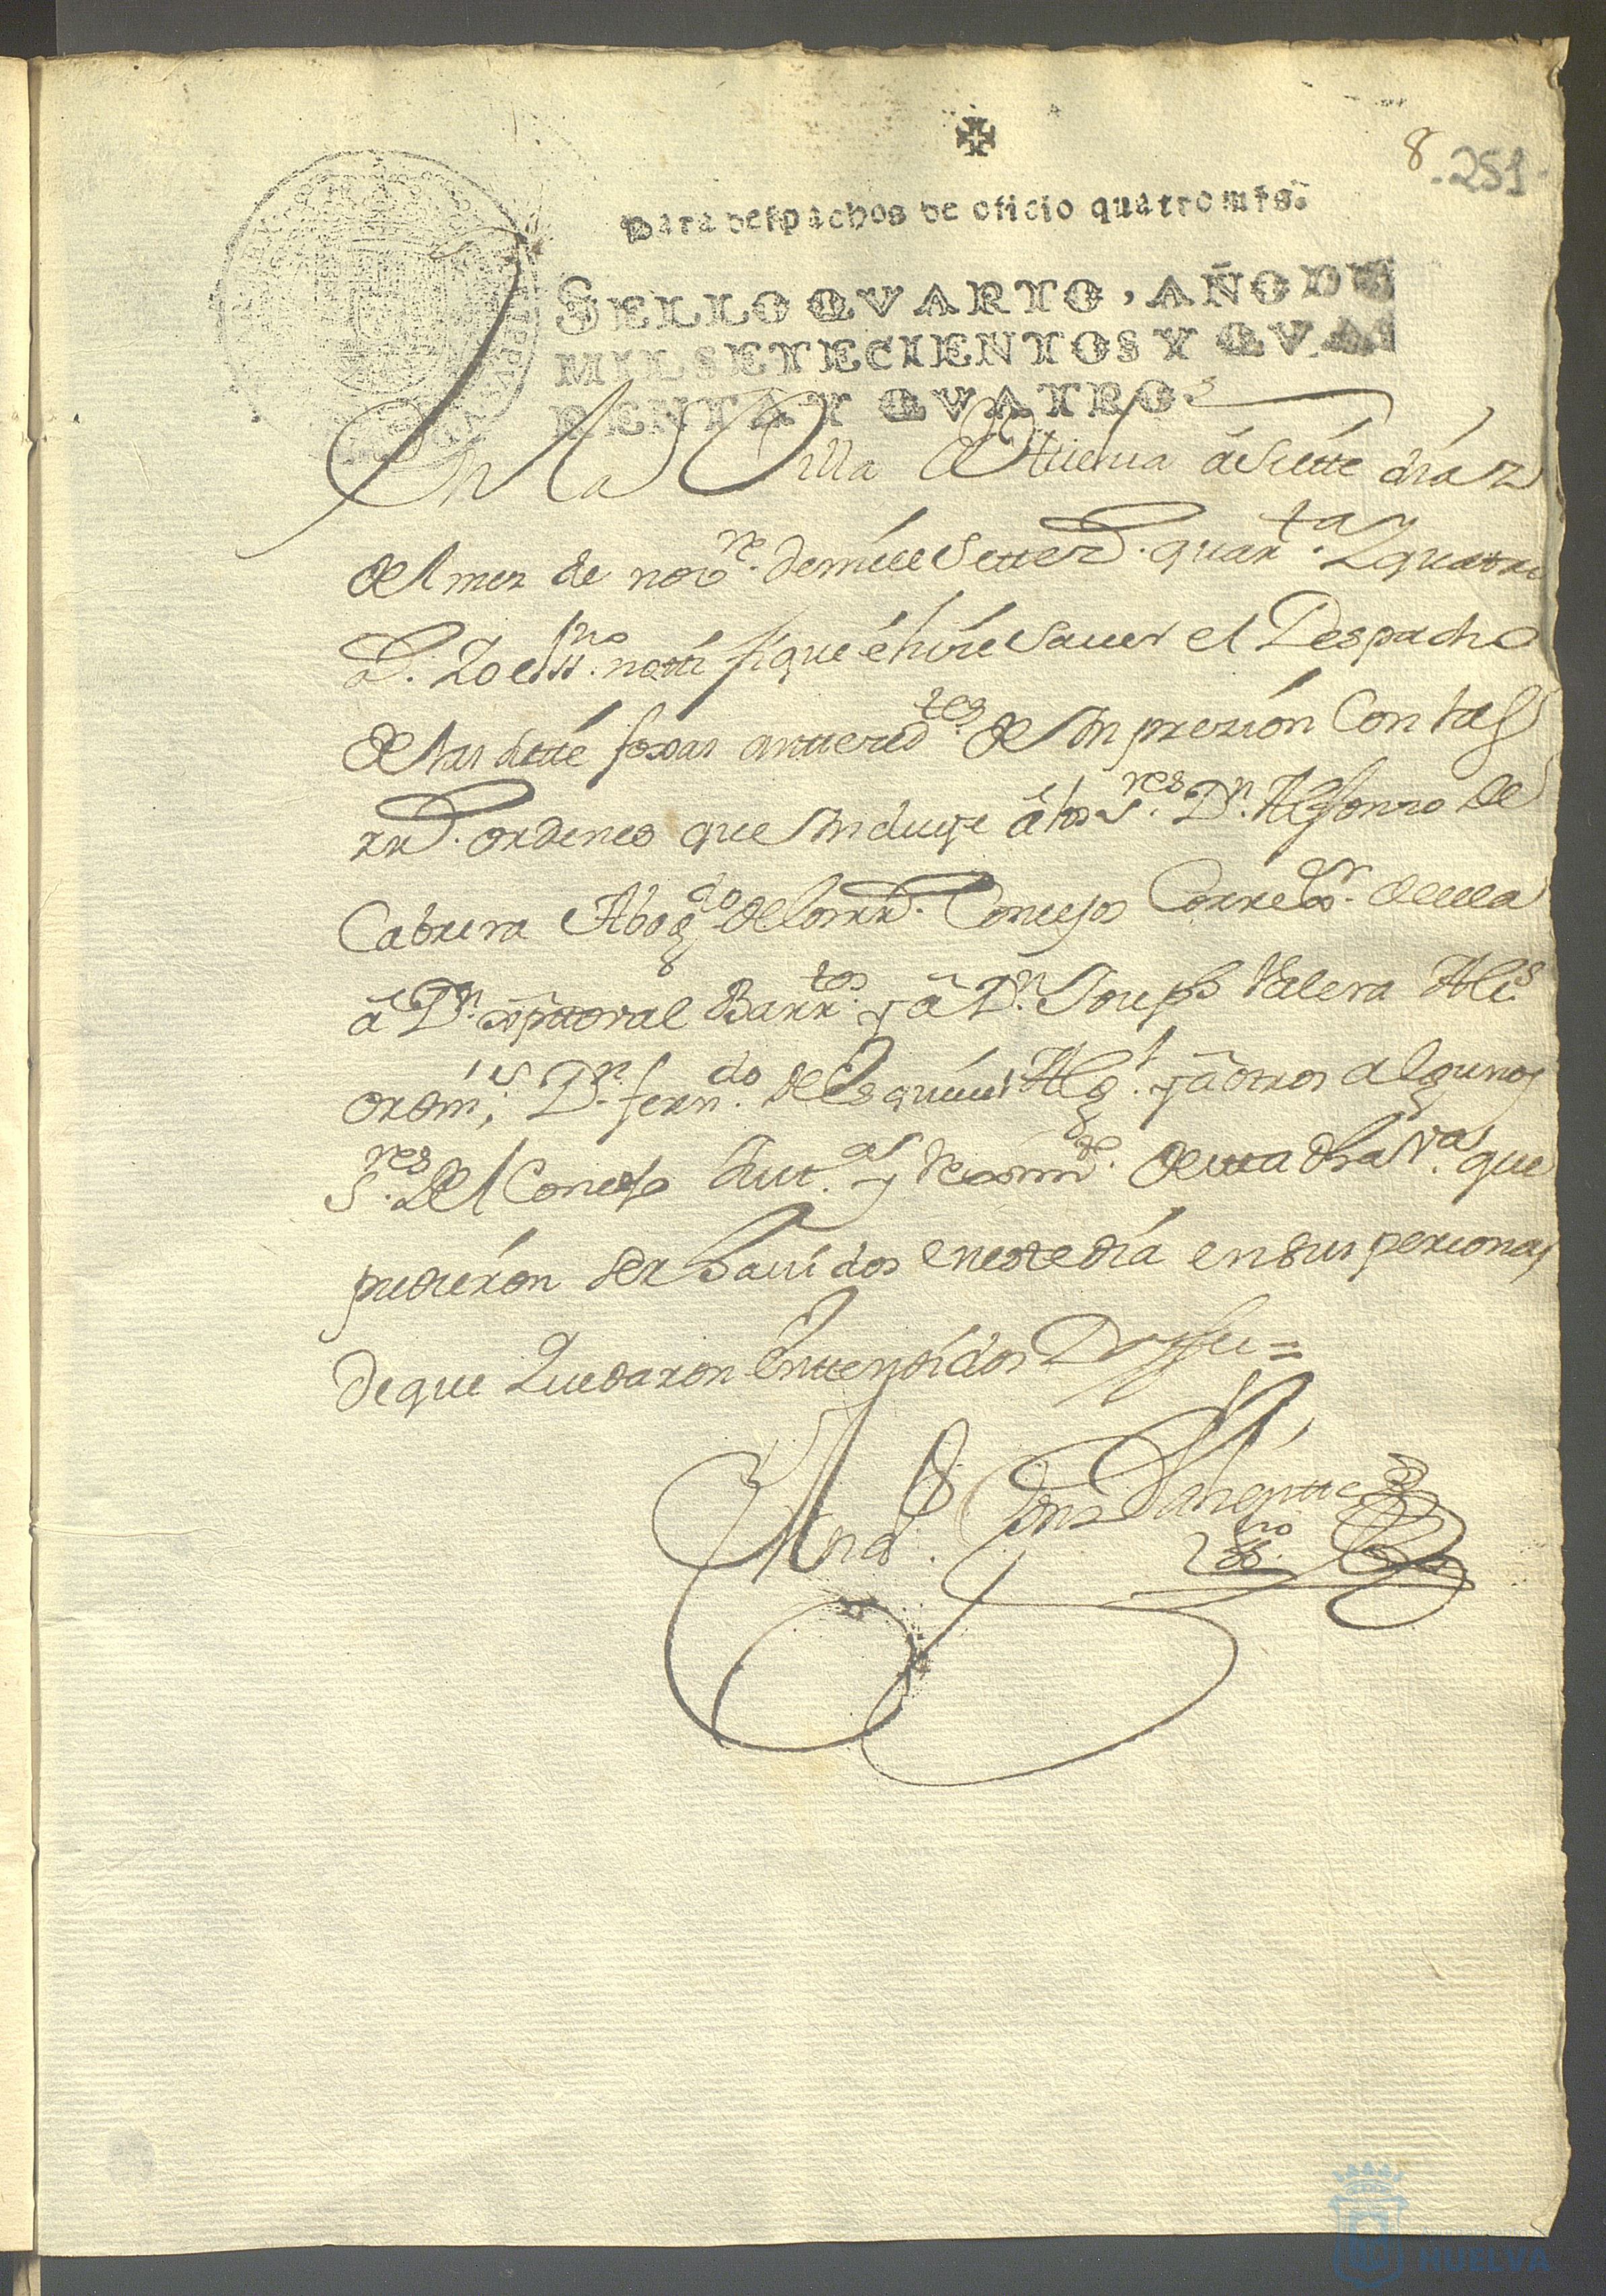 8
251
Para despachos de oficio quatro mrs.
SELLO QVARTO, AÑO DE
MIL SETECIENTOS Y QVA
RENTA Y QVATRO.
En la Villa de Huelua á siette diaz
del mez de nov.re de mill settez.s quar.ta y quattro
a.s Yo el ss.no nottifiqué é hize sauer el Despacho
de las siette foxas antteced.tes de Inprezión con las
rr.s ordenes que Incluye á los S.res D.n Alfonzo de
Cabrera Abog.do de los rr.s Consejos Corre.or de ella
á D.n xpttoval Barr.tos y á D.n Joseph Valera Alc.s
ordin.s D.n fern.do de Esquiuel Alg.l y á otros algunos
S.res del Consejo Just.a y Reximi.to de esta dha V.a que
pudierón ser hauidos en este dia en sus perzonas
de que Quedaron Enttendidos Doy fee =
And.s Gonz Valientte
ss.no
HUELVA